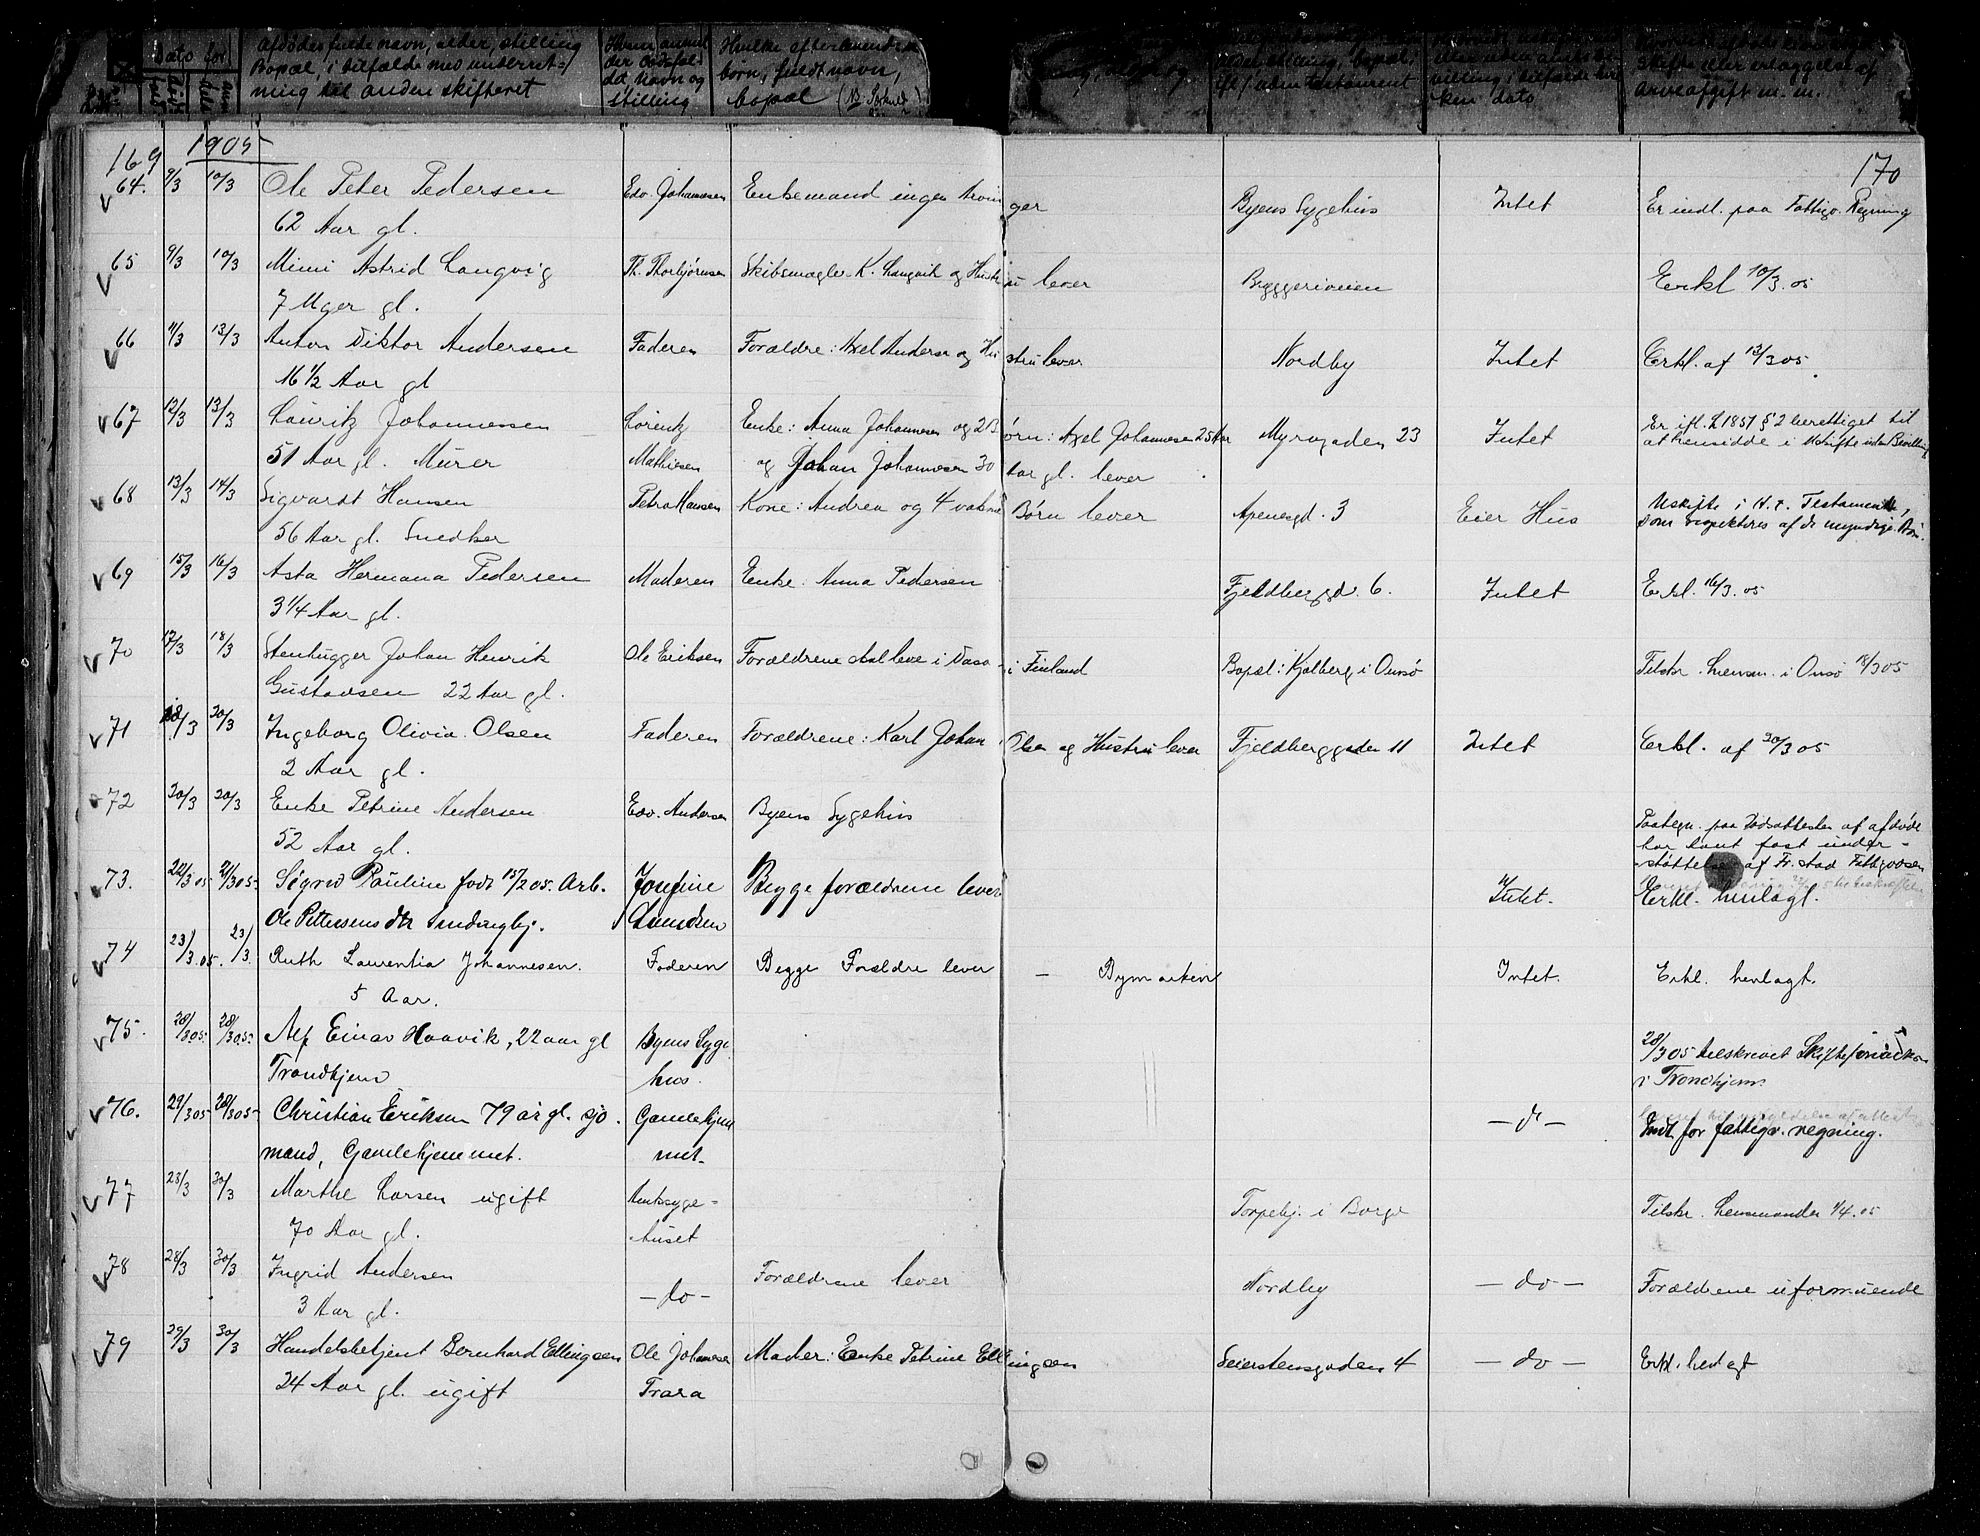 Dato for
Afdødes fulde navn, alder, stilling
Bopæl, i tilfælde med underret-
ning til anden skifteret
Hvem anmel
der dødsfal
det, navn og
stilling
Hvilke efterlevende
børn, fuldt navn,
bopæl
skifte eller erlæggelse af
arveafgift m. m.
169 1905 170
64. 9/3 10/3 Ole Peter Pedersen Edv. Johannesen Enkemand ingen Arvinger Byens Sygehus Intet Er indl. paa Fattigv. Regning
62 Aar gl.
65 9/3 10/3 Mimi Astrid Langvig Th. Thorbjørnsen Skibsmægler K. Langvik og Hustru lever Bryggeriveien Erkl 10/3.05
7 Uger gl.
66 11/3 13/3 Anton Viktor Andersen Faderen Forældre: Axel Andersen og Hustru lever Nordby Intet Erkl. af 13/3 05
16 1/2 Aar gl
67 12/3 13/3 Lauritz Johannessen Lorentz Enke: Anna Johannesen og 2 Børn: Axel Johannesen 25 Aar Myragaden 23 Intet Er ifl. L 1851 § 2 berettiget til
51 Aar gl. Murer Mathiesen og Johan Johannesen 30 Aar gl. lever at hensidde i Uskifte uden Bevilling
68 13/3 14/3 Sigvardt Hansen Petra Hansen Kone: Andrea og 4 voksne Børn lever Apenesgd. 3 Eier Hus Uskifte i H. t. Testamente,
56 Aar gl. Snedker som respekteres af de myndige Arv.
69 15/3 16/3 Asta Hermana Pedersen Moderen Enke: Anna Pedersen Fjeldbergsgd. 6. Intet Erkl. 16/3.05
3 1/4 Aar gl.
70 17/3 18/3 Stenhugger Johan Henrik Ole Eriksen Forældrene skal leve i Vasa i Finland Bopæl: Kjølberg i Onsø Tilskr. Lensm. i Onsø 18/3 05
Gustavsen 22 Aar gl.
71 18/3 20/3 Ingeborg Olivia Olsen Faderen Forældrene: Karl Johan Olsen og Hustru lever Fjeldberggaden 11 Intet Erkl. af 20/3 05
2 Aar gl.
72 20/3 20/3 Enke Petrine Andersen Edv. Andersen Byens Sygehus
52 Aar gl. Paategn. paa Dødsattesten af afdøde
har havt fast under-
støttelse af Fr.stad Fattigvæsen
73. 20/3 05 21/3 05. Sigrid Pauline født 15/2 05. Arb. Josefine Begge forældrene lever Intet. Erkl. henlagt.
Ole Pettersens dtr Smedingbj. Svendsen
74 23/3.05. 23/3. Ruth Laurentia Johannesen. Faderen Begge Forældre lever — Bymarken Intet. Erkl. henlagt.
5 Aar.
75. 28/3 05. 28/3 05. Alf Einar Haavik, 22 aar gl Byens Syge 28/3 05 tilskrevet Skifteforvalteren
Trondhjem hus. i Trondhjem.
76. 29/3 05 28/3 05. Christian Eriksen 79 år gl. sjø Gamlehjem — do — Indl. for fattigv. regning.
mand, Gamlehjemmet. met.
77 28/3 30/3 Marthe Larsen ugift Amtssyge- Torpebj. i Borge Tilskr. Lensmanden 1/4.05
70 Aar gl. huset
78 28/3 30/3 Ingrid Andersen — do — Forældrene lever Nordby — do — Forældrene uformuende
3 Aar gl.
79 29/3 30/3 Handelsbetjent Bernhard Ellingsen Ole Johannesen Moder: Enke Petrine Ellingsen Seierstensgaden 4 — do — Erkl. henlagt
24 Aar gl. ugift Trara